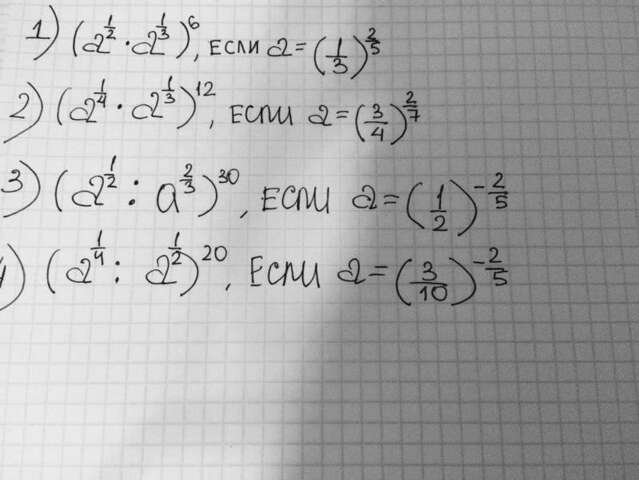 1) (a^{1/2} · a^{1/3})^6, если a = (1/3)^{2/5}
2) (a^{1/4} · a^{1/3})^{12}, если a = (3/4)^{2/7}
3) (a^{1/2} : a^{2/3})^{30}, если a = (1/2)^{-2/5}
4) (a^{1/4} : a^{1/2})^{20}, Если a = (3/10)^{-2/5}